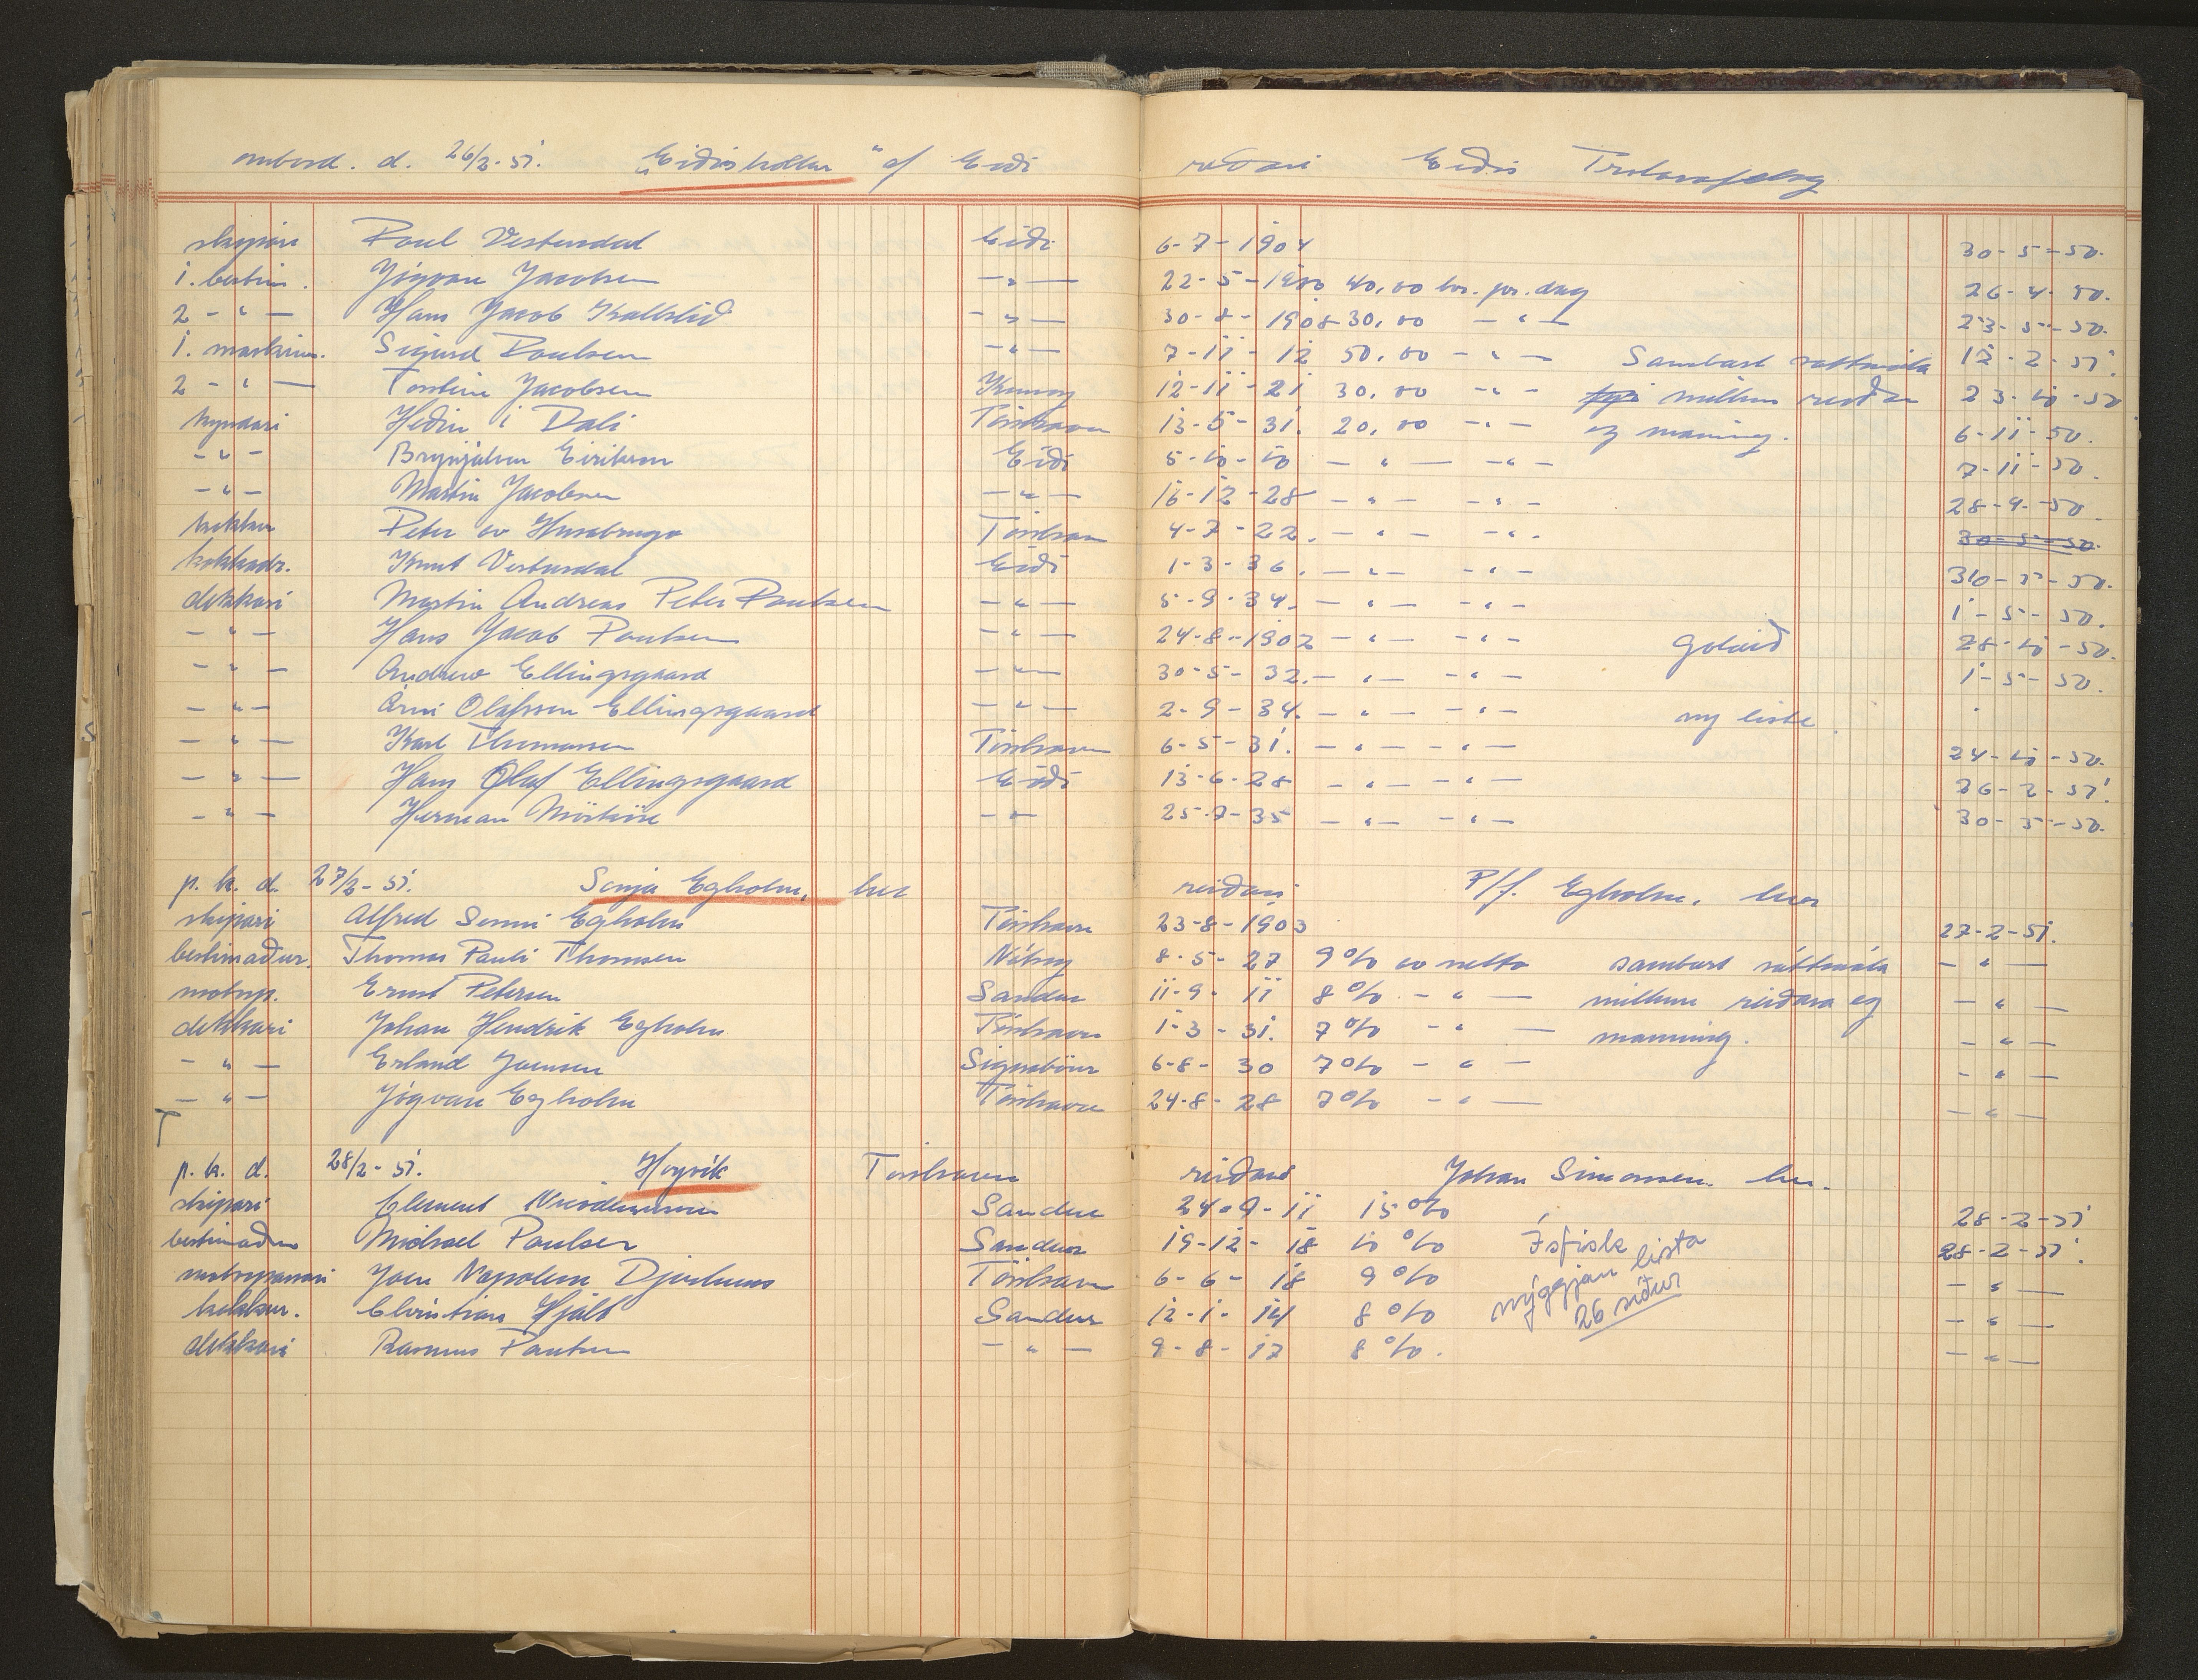 ombord. d. 26/2-51. „Eidiskollur" af Eidi reiðari Eidis Trolarafelag
skipari Poul Vestursdal Eidi 6-7-1904 30-5-50.
1. bestim. Jógvan Jacobsen -"- 22-5-1900 40,00 kr. pr. dag 26-4-50.
2 -"- Hans Jacob Kallslid -"- 30-8-1908 30,00 -"- 23-5-50.
1. maskinm. Sigurd Poulsen -"- 7-11-12 50,00 -"- Sambart rættmála 12-2-51.
2 -"- Torstein Jacobsen Kunoy 12-11-21 30,00 -"- millum reiðar 23-10-50
kyndari Hedin í Dali Tórshavn 13-5-31. 20,00 -"- og manning. 6-11-50.
-"- Brynjálvur Eirikson Eidi 5-10-10 -"- -"- 7-11-50.
-"- Martin Jacobsen -"- 16-12-28 -"- -"- 28-9-50
kokkur Peter av Husabrugv Tórshavn 4-7-22. -"- -"- 30-5-50.
kokkadr. Knut Vestursdal Eidi 1-3-36. -"- -"- 30-5-50.
dekkari Martin Andreas Peter Poulsen -"- 5-9-34. -"- -"- 1-5-50.
-"- Hans Jacob Poulsen -"- 24-8-1902 -"- -"- Goldid 28-10-50.
-"- Andrew Ellingsgaard -"- 30-5-32. -"- -"- 1-5-50.
-"- Árni Olafsson Ellingsgaard -"- 2-9-34. -"- -"- ny liste
-"- Karl Thomassen Tórshavn 6-5-31. -"- -"- 24-10-50.
-"- Hans Olaf Ellingsgaard Eidi 13-6-28 -"- -"- 26-2-51.
-"- Herman Mörköre -"- 25-7-35 -"- -"- 30-5-50.
p. k. d. 27/2-51. Sonja Egholm, her reiðari P/f. Egholm, her
skipari Alfred Sonni Egholm Tórshavn 23-8-1903 27-2-51.
bestimaður. Thomas Pauli Thomsen Nólsoy 8-5-27 9% av netto sambart rættmála -"-
motorp. Ernst Petersen Sandur 11-9-11 8% -"- millum reiðara og -"-
dekkari Johan Hendrik Egholm Tórshavn 1-3-31. 7% -"- manning. -"-
-"- Erland Joensen Signaböur 6-8-30 7% -"- -"-
-"- Jógvan Egholm Tórshavn 24-8-28 7% -"- -"-
p. k. d. 28/2-51. Hoyvík Torshavn reiðari Johan Simonsen. her.
skipari Clement Nicodemussen Sandur 24-9-11 15% 28-2-51
bestimaður Michael Poulsen Sandur 19-12-18 10% Ísfisk 28-2-51.
motorpassari Joen Napoleon Djurhuus Tórshavn 6-6-18 9% nýggjan lista -"-
kokkur. Christian Hjalt Sandur 12-1-14 8% 26 síður -"-
dekkari Rasmus Poulsen -"- 9-8-17 8%. -"-